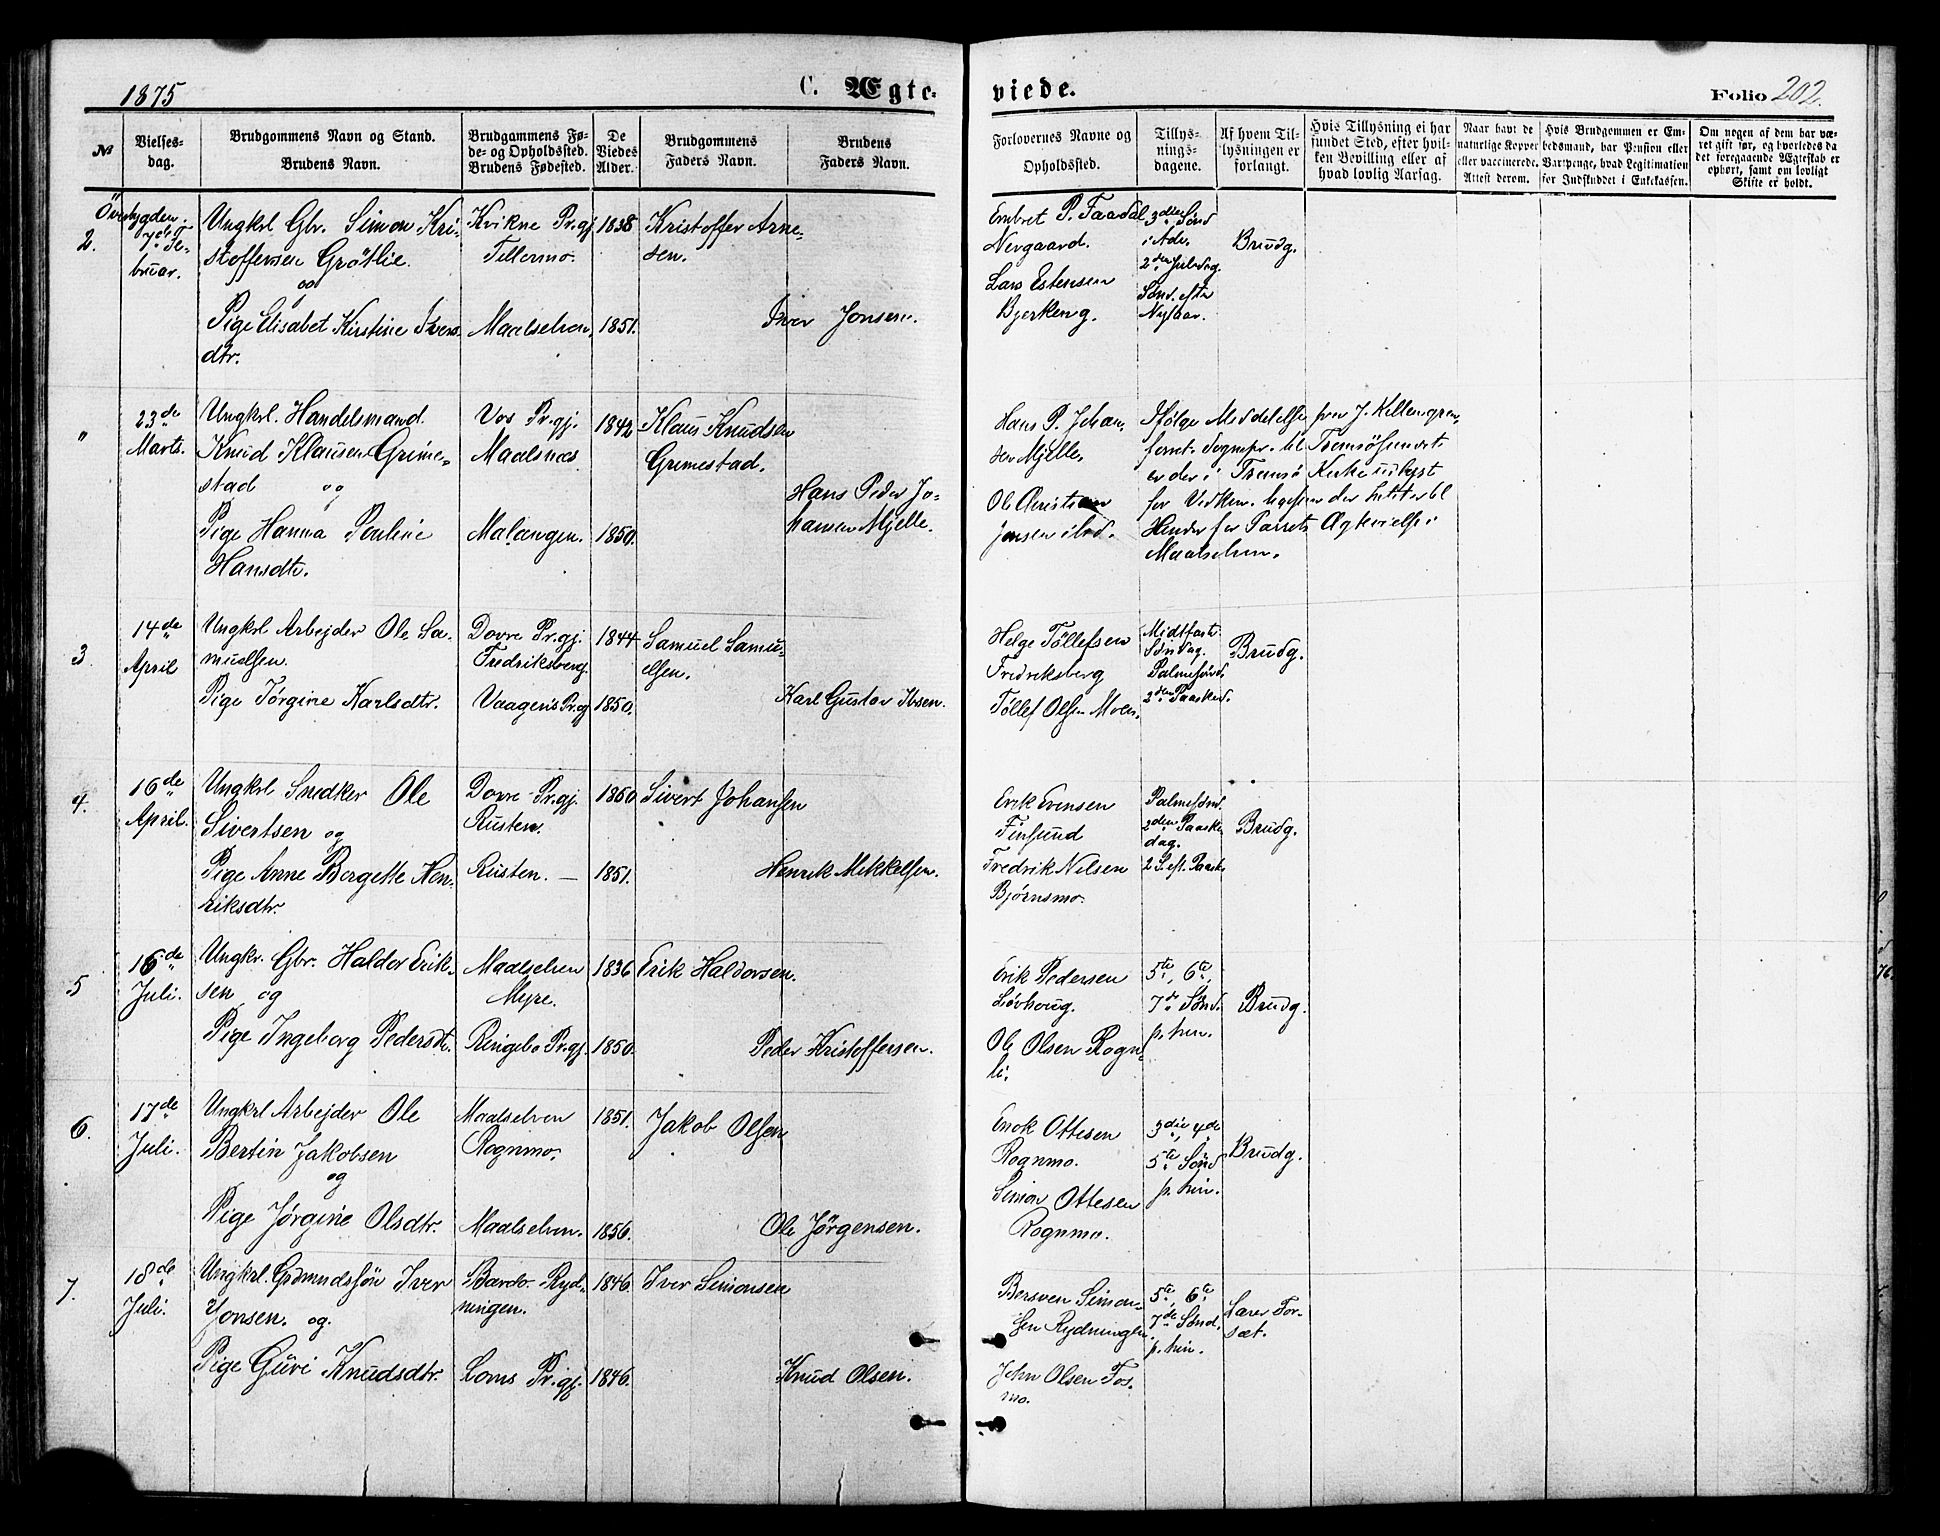 1875
C. Ægte-
viede.
Folio 202.
№
Vielses-
dag.
Brudgommens Navn og Stand.
Brudens Navn.
Brudgommens Fø-
de- og Opholdssted.
Brudens Fødested.
De
Viedes
Alder.
Brudgommens
Faders Navn.
Brudens
Faders Navn.
Forlovernes Navne og
Opholdssted.
Tillys-
nings-
dagene.
Af hvem Til-
lysningen er
forlangt.
Hvis Tillysning ei har
fundet Sted, efter hvil-
ken Bevilling eller af
hvad lovlig Aarsag.
Naar havt de
naturlige Kopper
eller vaccinerede.
Attest derom.
Hvis Brudgommen er Em-
bedsmand, har Pension eller
Vartpenge, hvad Legitimation
for Indskuddet i Enkekassen.
Om nogen af dem har væ-
ret gift før, og hvorledes da
det foregaaende Ægteskab er
ophørt, samt om lovligt
Skifte er holdt.
Överbygden.
2.
7de Fe-
bruar.
Ungkrl Gbr. Simon Kri-
stoffersen Grötlie.
og
Pige Elisabet Kirstine Ivers
dtr.
Kvikne Pr.gj
Tellermo.
Maalselven.
1838
1851.
Kristoffer Arne-
sen.
Iver Jonsen.
Embret P. Faadal
Nergaard.
Lars Estensen
Bjerkeng.
3die Sönd
i Adv.
2den Juledag.
Sønd. efter
Nytaar.
Brudg.
"
23de
Marts.
Ungkrl. Handelsmand
Knud Klausen Grime-
stad og
Pige Hanna Pauline
Hansdtr.
Vos Pr.gj.
Maalsnæs
Malangen.
1842
1850.
Klaus Knudsen
Grimestad.
Hans Peder Jo-
hansen Mjelle.
Hans P. Johan-
sen Mjelle.
Ole Christian
Jensen ibid.
Ifölge Meddelelse fra J. Killengreen
forret. Sognepr. til Tromsösundet
er der i Tromsö Kirke udlyst
for Vedkom. hvorfor der Intet er til
Hinder for Parrets Ægtevielse i
Maalselven.
3.
14de
April
Ungkrl Arbejder Ole Sa-
muelsen.
Pige Jörgine Karlsdtr.
Dovre Pr.gj.
Fredriksberg.
Vaagens Pr.gj
1844
1850.
Samuel Samu-
elsen.
Karl Gustav Ibsen.
Helge Töllefsen
Fredriksberg
Töllef Olsen Moen.
Midtfaste
Søndag.
Palmesønd.
2den Paasked.
Brudg.
4.
16de
April.
Ungkrl Snedker Ole
Sivertsen og
Pige Anne Bergette Hen-
riksdtr.
Dovre Pr.gj.
Rusten.
Rusten. —
1860
1851.
Sivert Johansen
Henrik Mikkelsen.
Erik Evensen
Finsund
Fredrik Nilsen
Bjørnsmo.
Palmesønd.
2den Paaske
dag.
2 S. eft. Paaske
Brudg.
5
16de
Juli.
Ungkr. Gbr. Haldor Erik-
sen og
Pige Ingeborg Pedersdtr.
Maalselven
Myre.
Ringebo Pr.gj.
1836
1850.
Erik Haldorsen.
Peder Kristoffersen.
Erik Pedersen
Lövhoug.
Ole Olsen Rogn-
li.
5te, 6te,
7de Sønd.
p. trin.
Brudg.
6.
17de
Juli.
Ungkrl Arbejder Ole
Bertin Jakobsen
og
Pige Jörgine Olsdtr.
Maalselven
Rognmo.
Maalselven.
1851.
1856.
Jakob Olsen
Ole Jörgensen.
Enok Ottesen
Rognmo.
Simon Ottesen
Rognmo.
3die, 4de
5te Sønd
p. trin.
Brudg.
7.
18de
Juli.
Ungkrl. Grdmandssön Iver
Jonsen. og
Pige Guri Knudsdtr.
Bardo Ryd-
ningen.
Loms Pr.gj.
1846.
1846.
Iver Simonsen
Knud Olsen.
Bersven Simon-
sen Rydningen.
John Olsen Fos-
mo.
5te, 6te
7de Sønd.
p. trin.
Lærer For-
sæt.